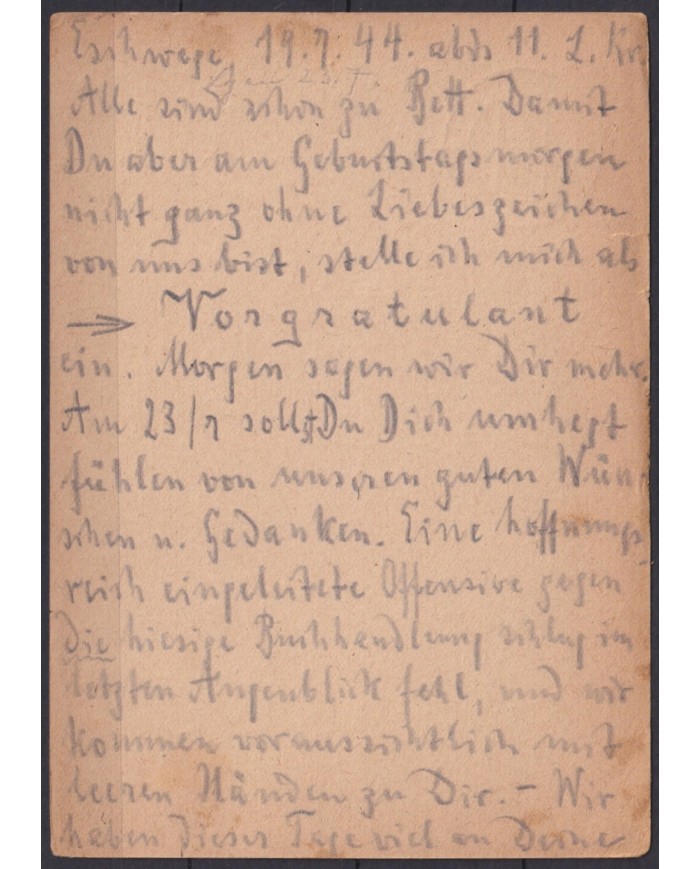 Eschwege, 19.7.44. abds 11. L. Kr.
Alle sind schon zu Bett. Damit
Du aber am Geburtstagsmorgen
nicht ganz ohne Liebeszeichen
von uns bist, stelle ich mich als
→ Vorgratulant
ein. Morgen sagen wir Dir mehr.
Am 23/7 sollst Du Dich umhegt
fühlen von unseren guten Wün-
schen u. Gedanken. Eine hoffnungs-
reich eingeleitete Offensive gegen
die hiesige Buchhandlung schlug im
letzten Augenblick fehl, und wir
kommen voraussichtlich mit
leeren Händen zu Dir. – Wir
haben dieser Tage viel an Deine